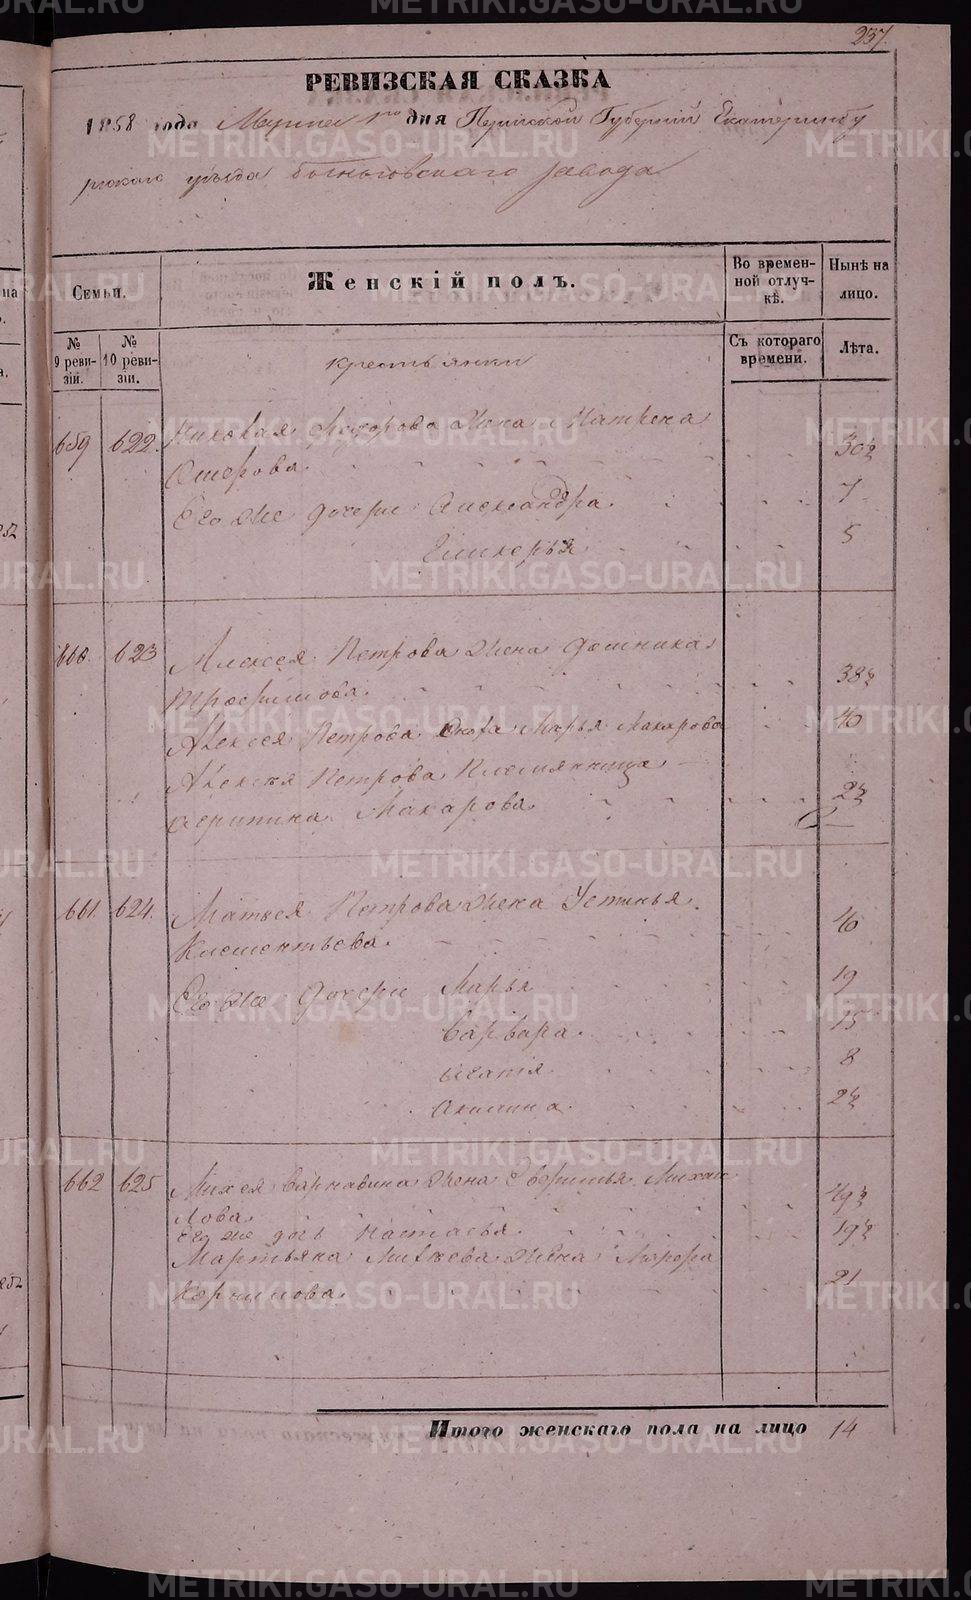 237.
РЕВИЗСКАЯ СКАЗКА
1858 года Марта 1го дня Пермской Губерніи Екатеринбу
ргскаго уѣзда завода
Семьи. Женскій полъ. Во времен-ной отлуч-кѣ. Нынѣ на лицо.
№ 9 реви-зіи. № 10 реви-зіи. крестьянки Съ котораго времени. Лѣта.
659 622. Ѳедорова жена Матрена
30½
Его же дочери Александра. 7
Гликерья 5
660. 623 Алексея Петрова жена
Трофимова. 38½
Алексея Петрова сноха Марья Макарова 40
Алексѣя Петрова племянница
Агрипина Макарова 2½
661. 624. Матвея Петрова жена Устинья
Клементьева. 40
Его же дочери Марья 19
Варвара. 15
Агатія 8
Акилина. 2½
662 625 Михея Варнавина жена Михаи
лова. 49½
Его же дочь Настасья. 19½
Мартьяна Михѣева жена
Корнилова. 21
Итого женскаго пола на лицо 14
METRIKI.GASO-URAL.RU